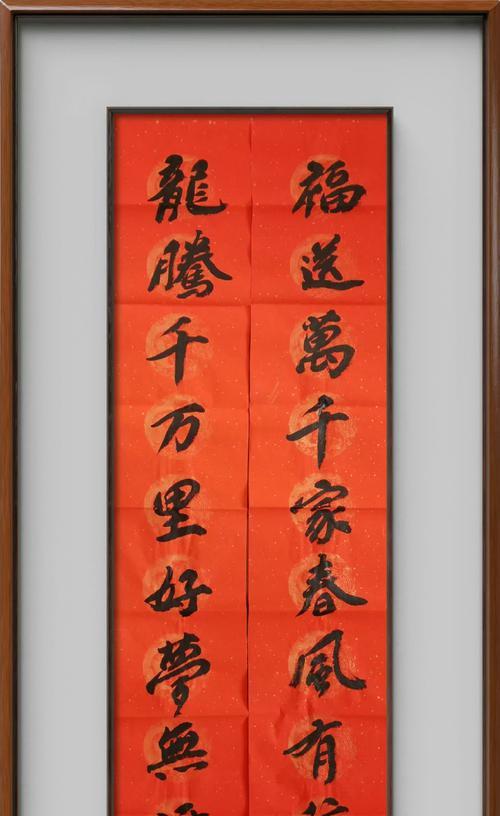 福送萬千家春風有
龍騰千万里好夢無